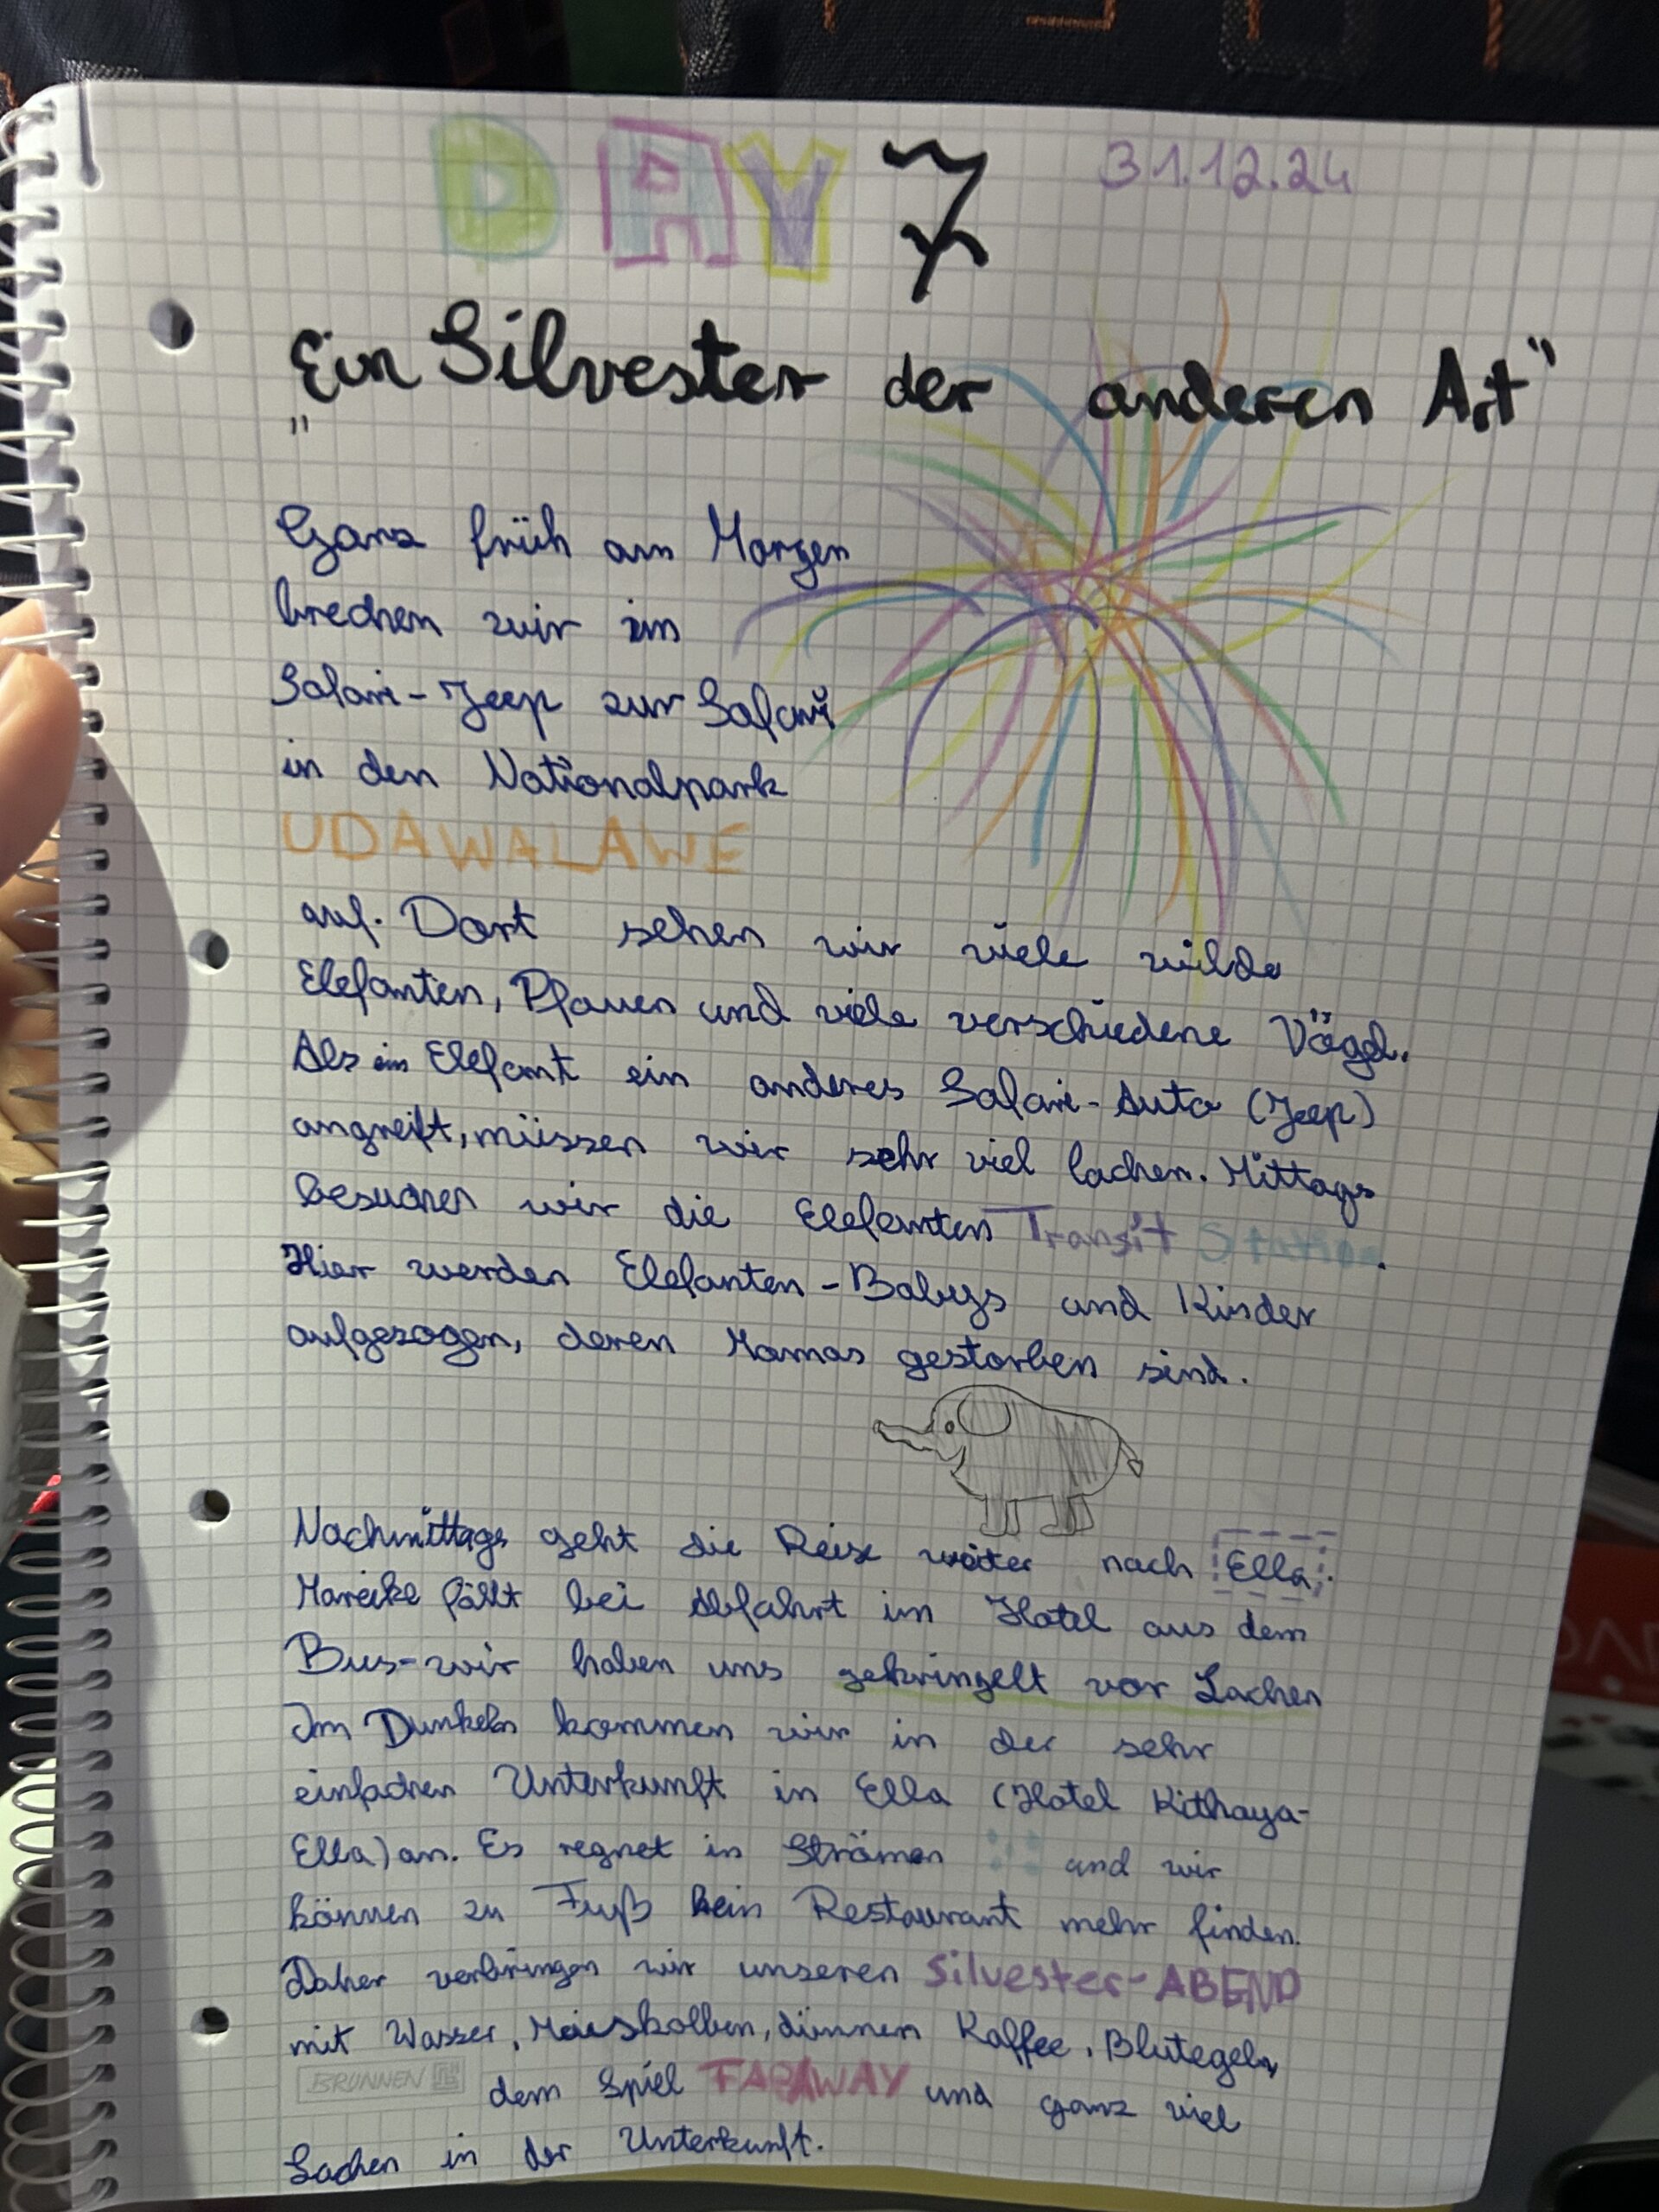 DAY 7 31.12.24
„Ein Silvester der anderen Art"
Ganz früh am Morgen
brechen wir im
Safari-Jeep zur Safari
in den Nationalpark
UDAWALAWE
auf. Dort sehen wir viele wilde
Elefanten, Pfauen und viele verschiedene Vögel.
Als ein Elefant ein anderes Safari-Auto (Jeep)
angreift, müssen wir sehr viel lachen. Mittags
besuchen wir die Elefanten Transit Station.
Hier werden Elefanten-Babys und Kinder
aufgezogen, deren Mamas gestorben sind.
Nachmittags geht die Reise weiter nach Ella.
Mareike fällt bei Abfahrt im Hotel aus dem
Bus-wir haben uns gekringelt vor Lachen
Im Dunkeln kommen wir in der sehr
einfachen Unterkunft in Ella (Hotel Kithaya-
Ella) an. Es regnet in Strömen und wir
können zu Fuß kein Restaurant mehr finden.
Daher verbringen wir unseren Silvester-ABEND
mit Wasser, Maiskolben, dünnen Kaffee, Blutegeln,
BRUNNEN dem Spiel FARAWAY und ganz viel
Lachen in der Unterkunft.